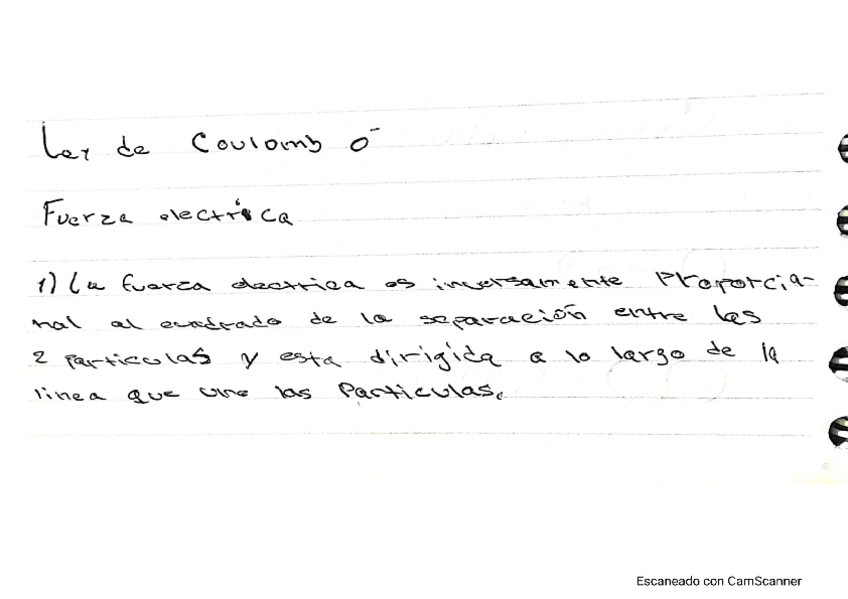 Ley de Coulomb ó
Fuerza electrica
1) La fuerza electrica es inversamente Proporcia-
nal al cuadrado de la separación entre las
2 particulas y esta dirigida a lo largo de la
linea que une las Particulas.
Escaneado con CamScanner